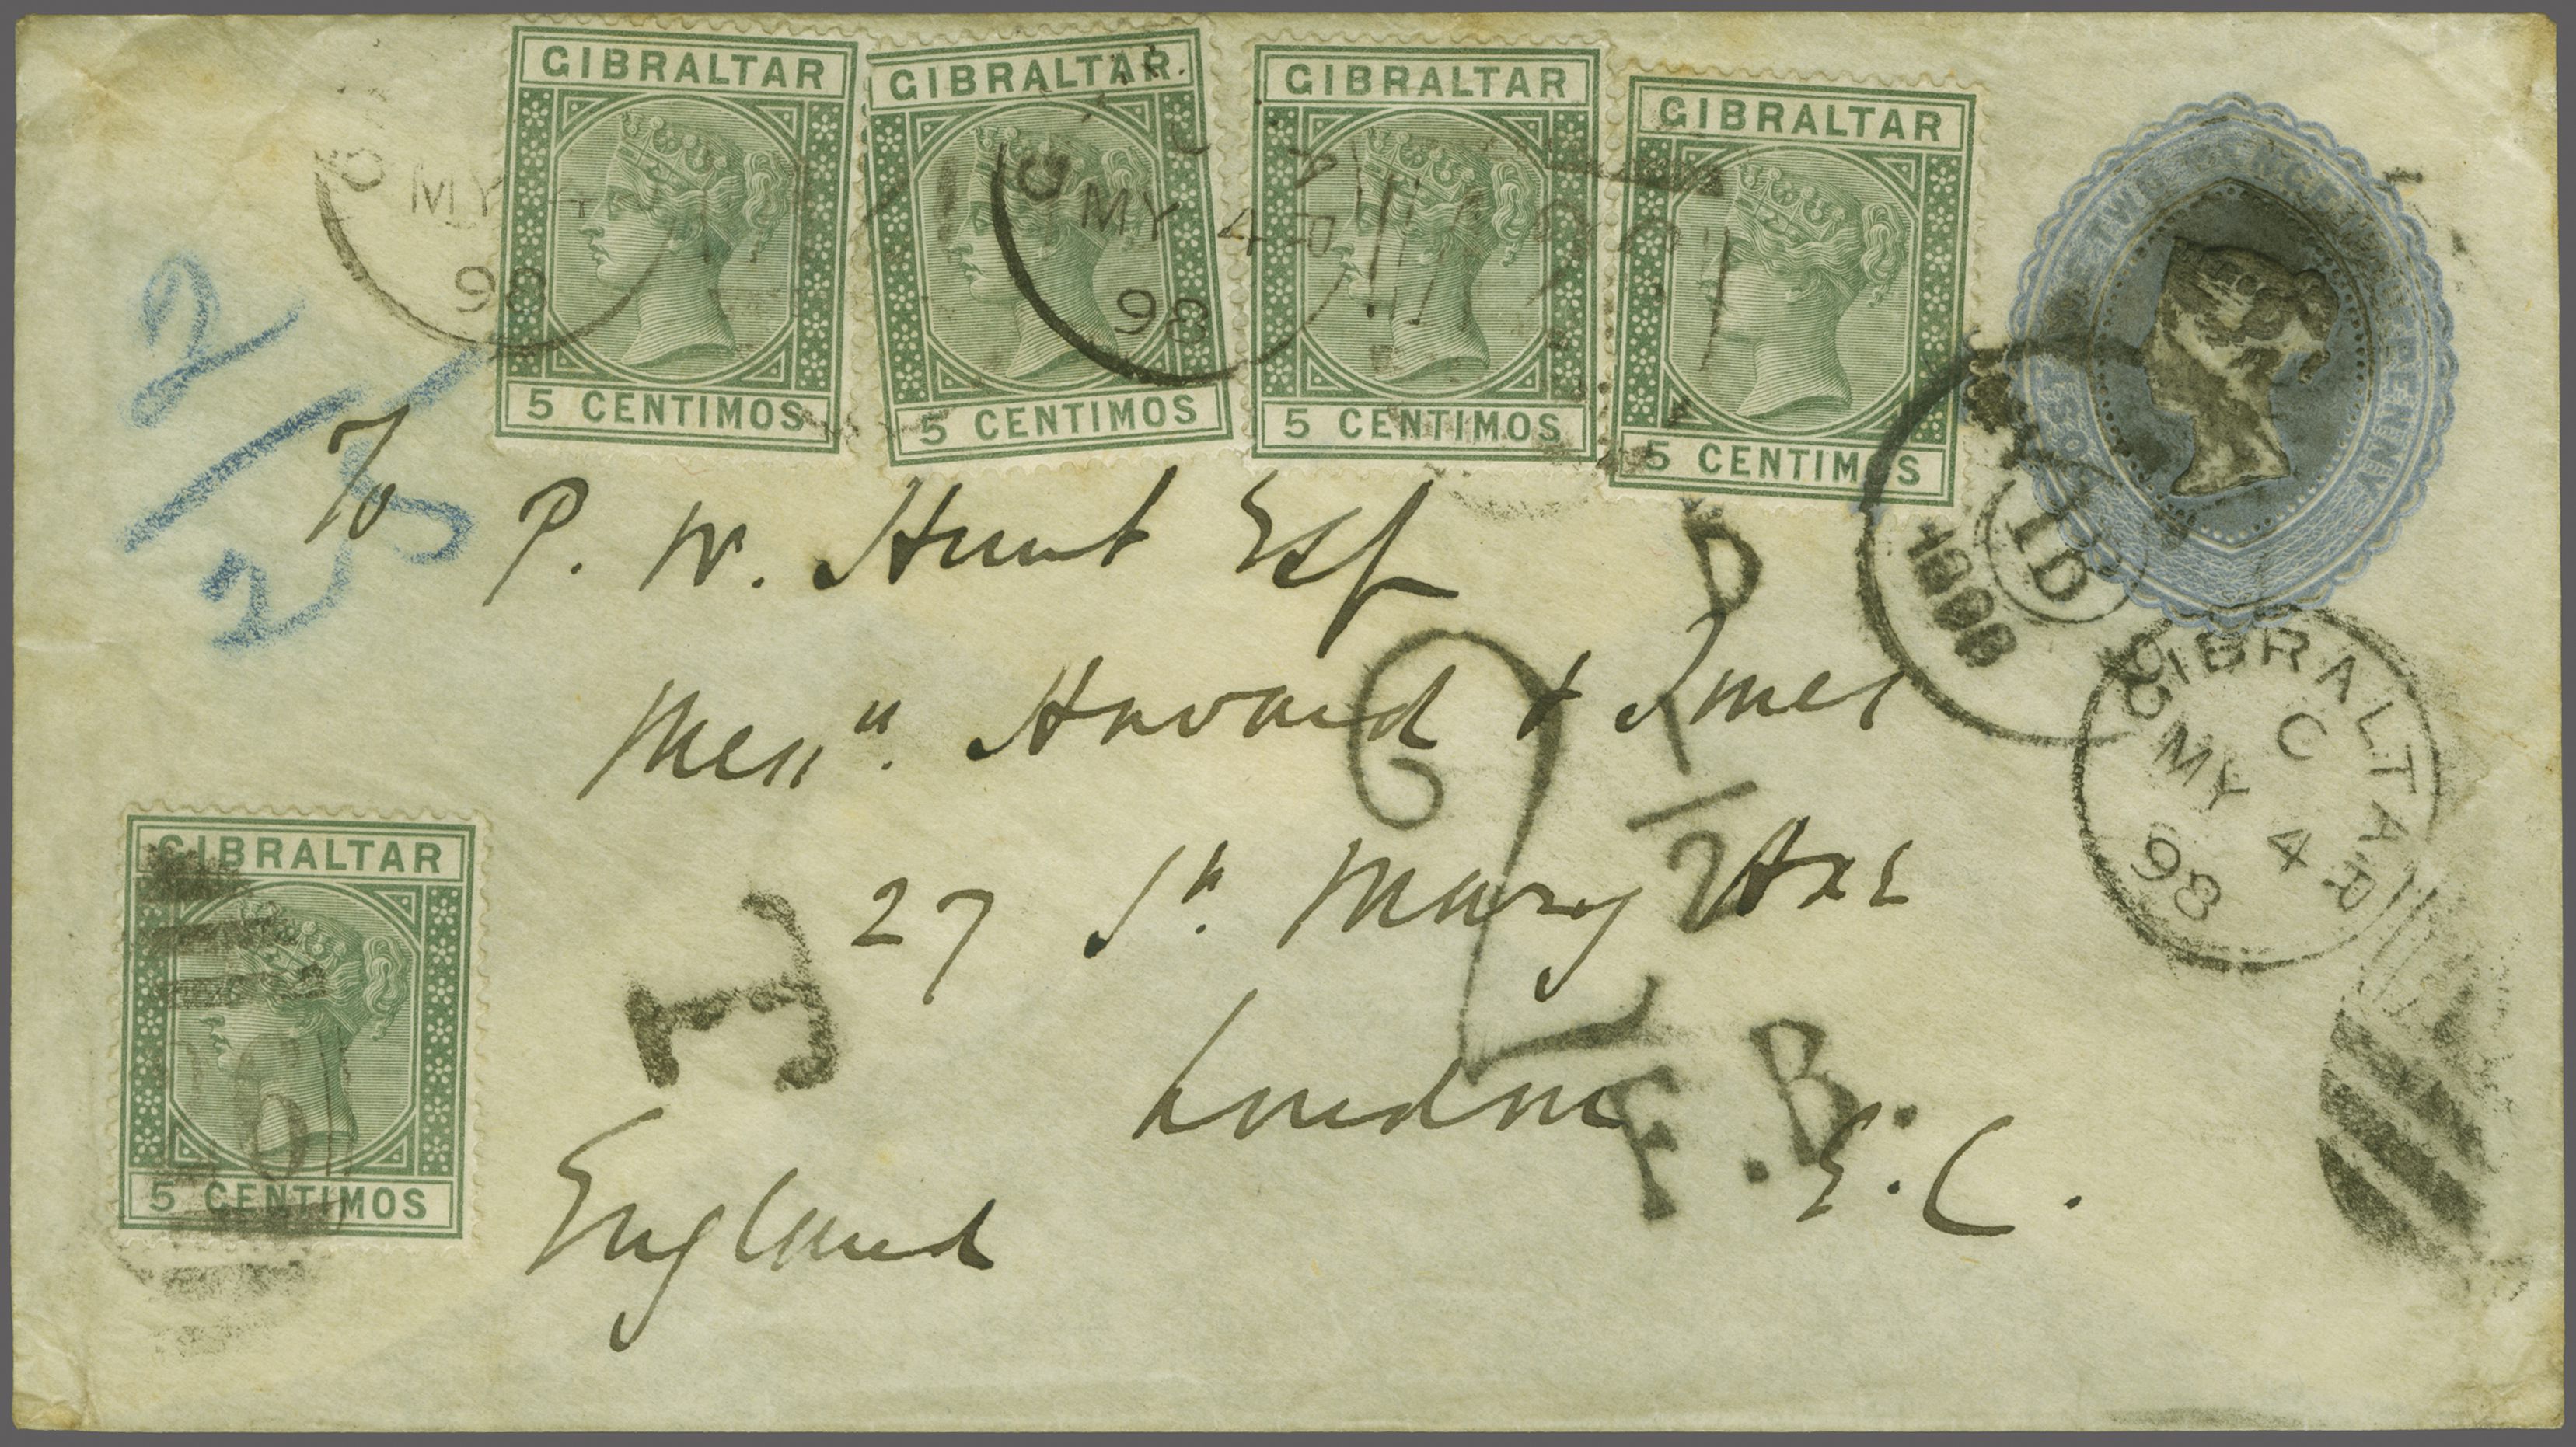 GIBRALTAR
5 CENTIMOS
GIBRALTAR
5 CENTIMOS
GIBRALTAR
5 CENTIMOS
GIBRALTAR
5 CENTIMOS
POST TWO PENCE HALFPENNY
MY 4
98
MY 4
98
2
To P. W. Hunt Esq
Messrs. Howard & Jones
27 St. Mary Axe
London
E. C.
England
D
2 1/2
F.B.
T
1D
GIBRALTAR
C
MY 4
98
GIBRALTAR
5 CENTIMOS